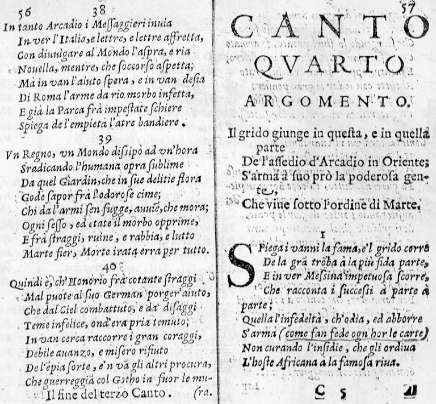 56
38
In tanto Arcadio i Messaggieri inuia
In ver l'Italia, e lettre, e lettre affretta,
Con diuulgar al Mondo l'aspra, e ria
Nouella, mentre, che soccorso aspetta;
Ma in van l'aiuto spera, e in van desia
Di Roma l'arme da rio morbo infetta,
E già la Parca frà impestate schiere
Spiega de l'empietà l'atre bandiere.
39
Vn Regno, vn Mondo dissipò ad vn'hora
Sradicando l'humana opra sublime
Da quel Giardin, che in sue delitie flora
Gode sapor frà l'odorose cime;
Chi da l'armi sen fugge, auuiē, che mora;
Ogni sesso, ed etate il morbo opprime,
E frà straggi, ruine, e rabbia, e lutto
Marte fier, Morte irata erra per tutto.
40
Quindi è, ch'Honorio frà cotante straggi
Mal puote al suo German porger aiuto,
Che dal Ciel combattuto, e da' disaggi
Teme infelice, ond'era pria temuto;
In van cerca raccorre i gran coraggi,
Debile auanzo, e misero rifiuto
De l'epia sorte, e'n và gli altri procura,
Che guerreggià col Gotho ia fuor le mu-
Il fine del terzo Canto. (ra.
57
CANTO
QVARTO
ARGOMENTO.
Il grido giunge in questa, e in quella
parte
De l'assedio d'Arcadio in Oriente;
S'arma à suo prò la poderosa gen-
te,
Che viue sotto l'ordine di Marte.
1
SPiega i vanni la fama, e'l grido corre
De la grã trõba à la più fida parte,
E in ver Messina impetuosa scorre,
Che racconta i successi à parte à
parte;
Quella l'infedeltà, ch'odia, ed abborre
S'arma (come fan fede ogn'hor le carte)
Non curando l'insidie, che gli ordiua
L'hoste Africana à la famosa riua.
C 5